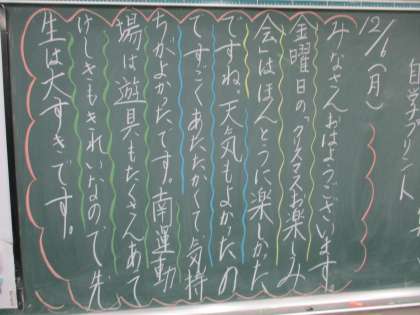 自学プリント
12/6(月)
みなさんおはようございます。
金曜日の「クリスマスお楽しみ
会」はほんとうに楽しかった
ですね。天気もよかったの
ですごくあたたかくて気持
ちがよかったです。南運動
場は遊具もたくさんあって
けしきもきれいなので先
生は大すきです。